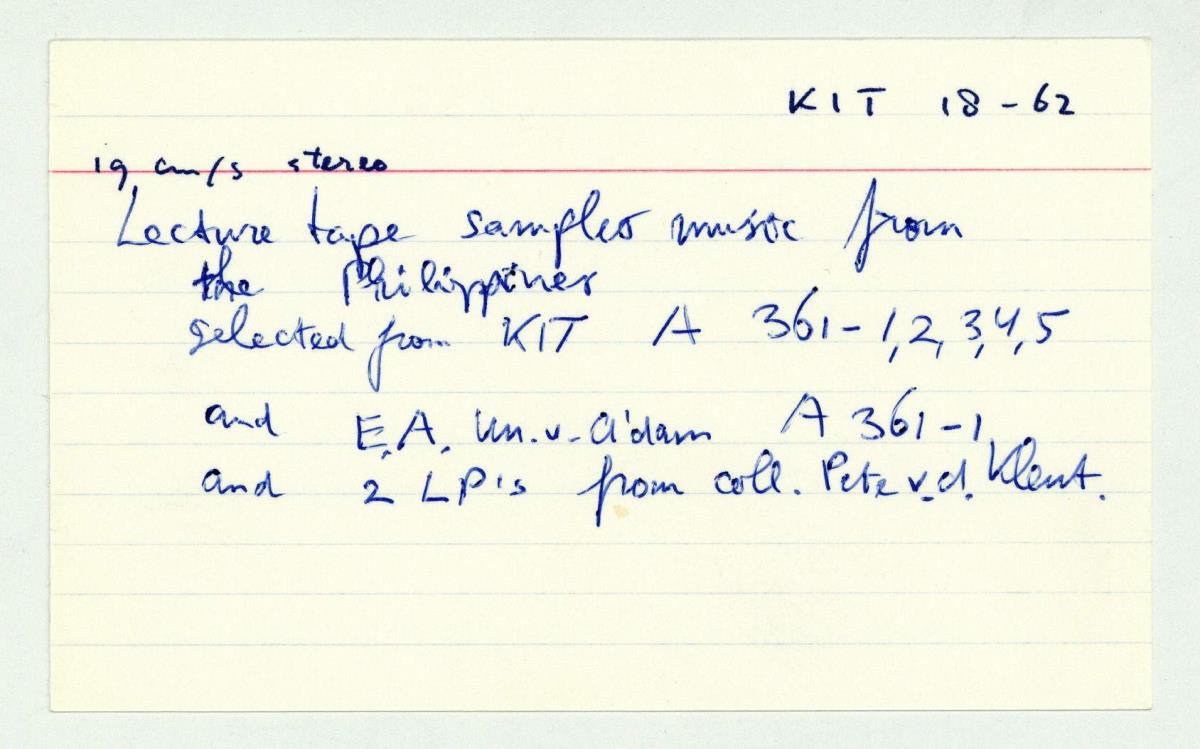 KIT 18-62
19 cm/s stereo
Lecture tape samples music from
the Philippines
selected from KIT A 361-1,2,3,4,5
and E.A. Un.v. A'dam A 361-1
and 2 LP's from coll. Pete v.d.